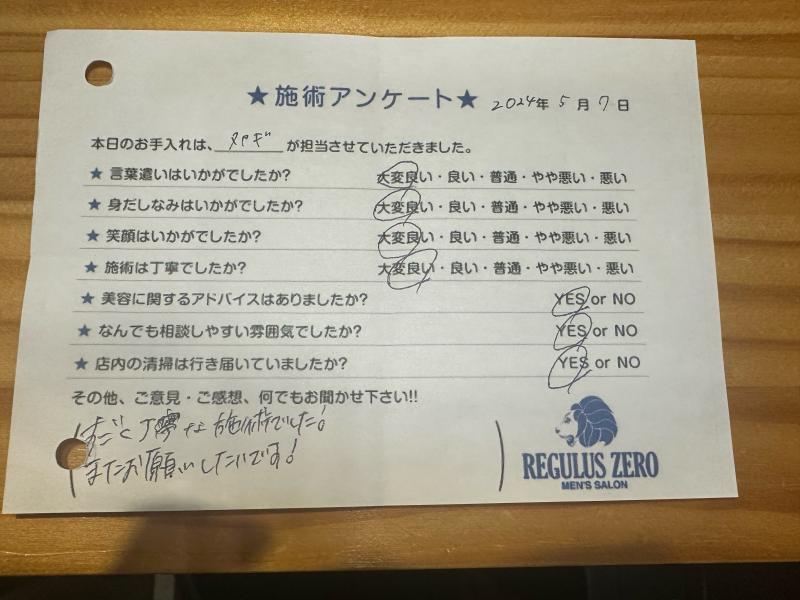 ★施術アンケート★ 2024年 5月 7日
本日のお手入れは、ヤギが担当させていただきました。
★ 言葉遣いはいかがでしたか? 大変良い・良い・普通・やや悪い・悪い
★ 身だしなみはいかがでしたか? 大変良い・良い・普通・やや悪い・悪い
★ 笑顔はいかがでしたか? 大変良い・良い・普通・やや悪い・悪い
★ 施術は丁寧でしたか? 大変良い・良い・普通・やや悪い・悪い
★ 美容に関するアドバイスはありましたか? YES or NO
★ なんでも相談しやすい雰囲気でしたか? YES or NO
★ 店内の清掃は行き届いていましたか? YES or NO
その他、ご意見・ご感想、何でもお聞かせ下さい!!
丁寧な施術でした!
またお願いしたいです!
REGULUS ZERO
MEN'S SALON